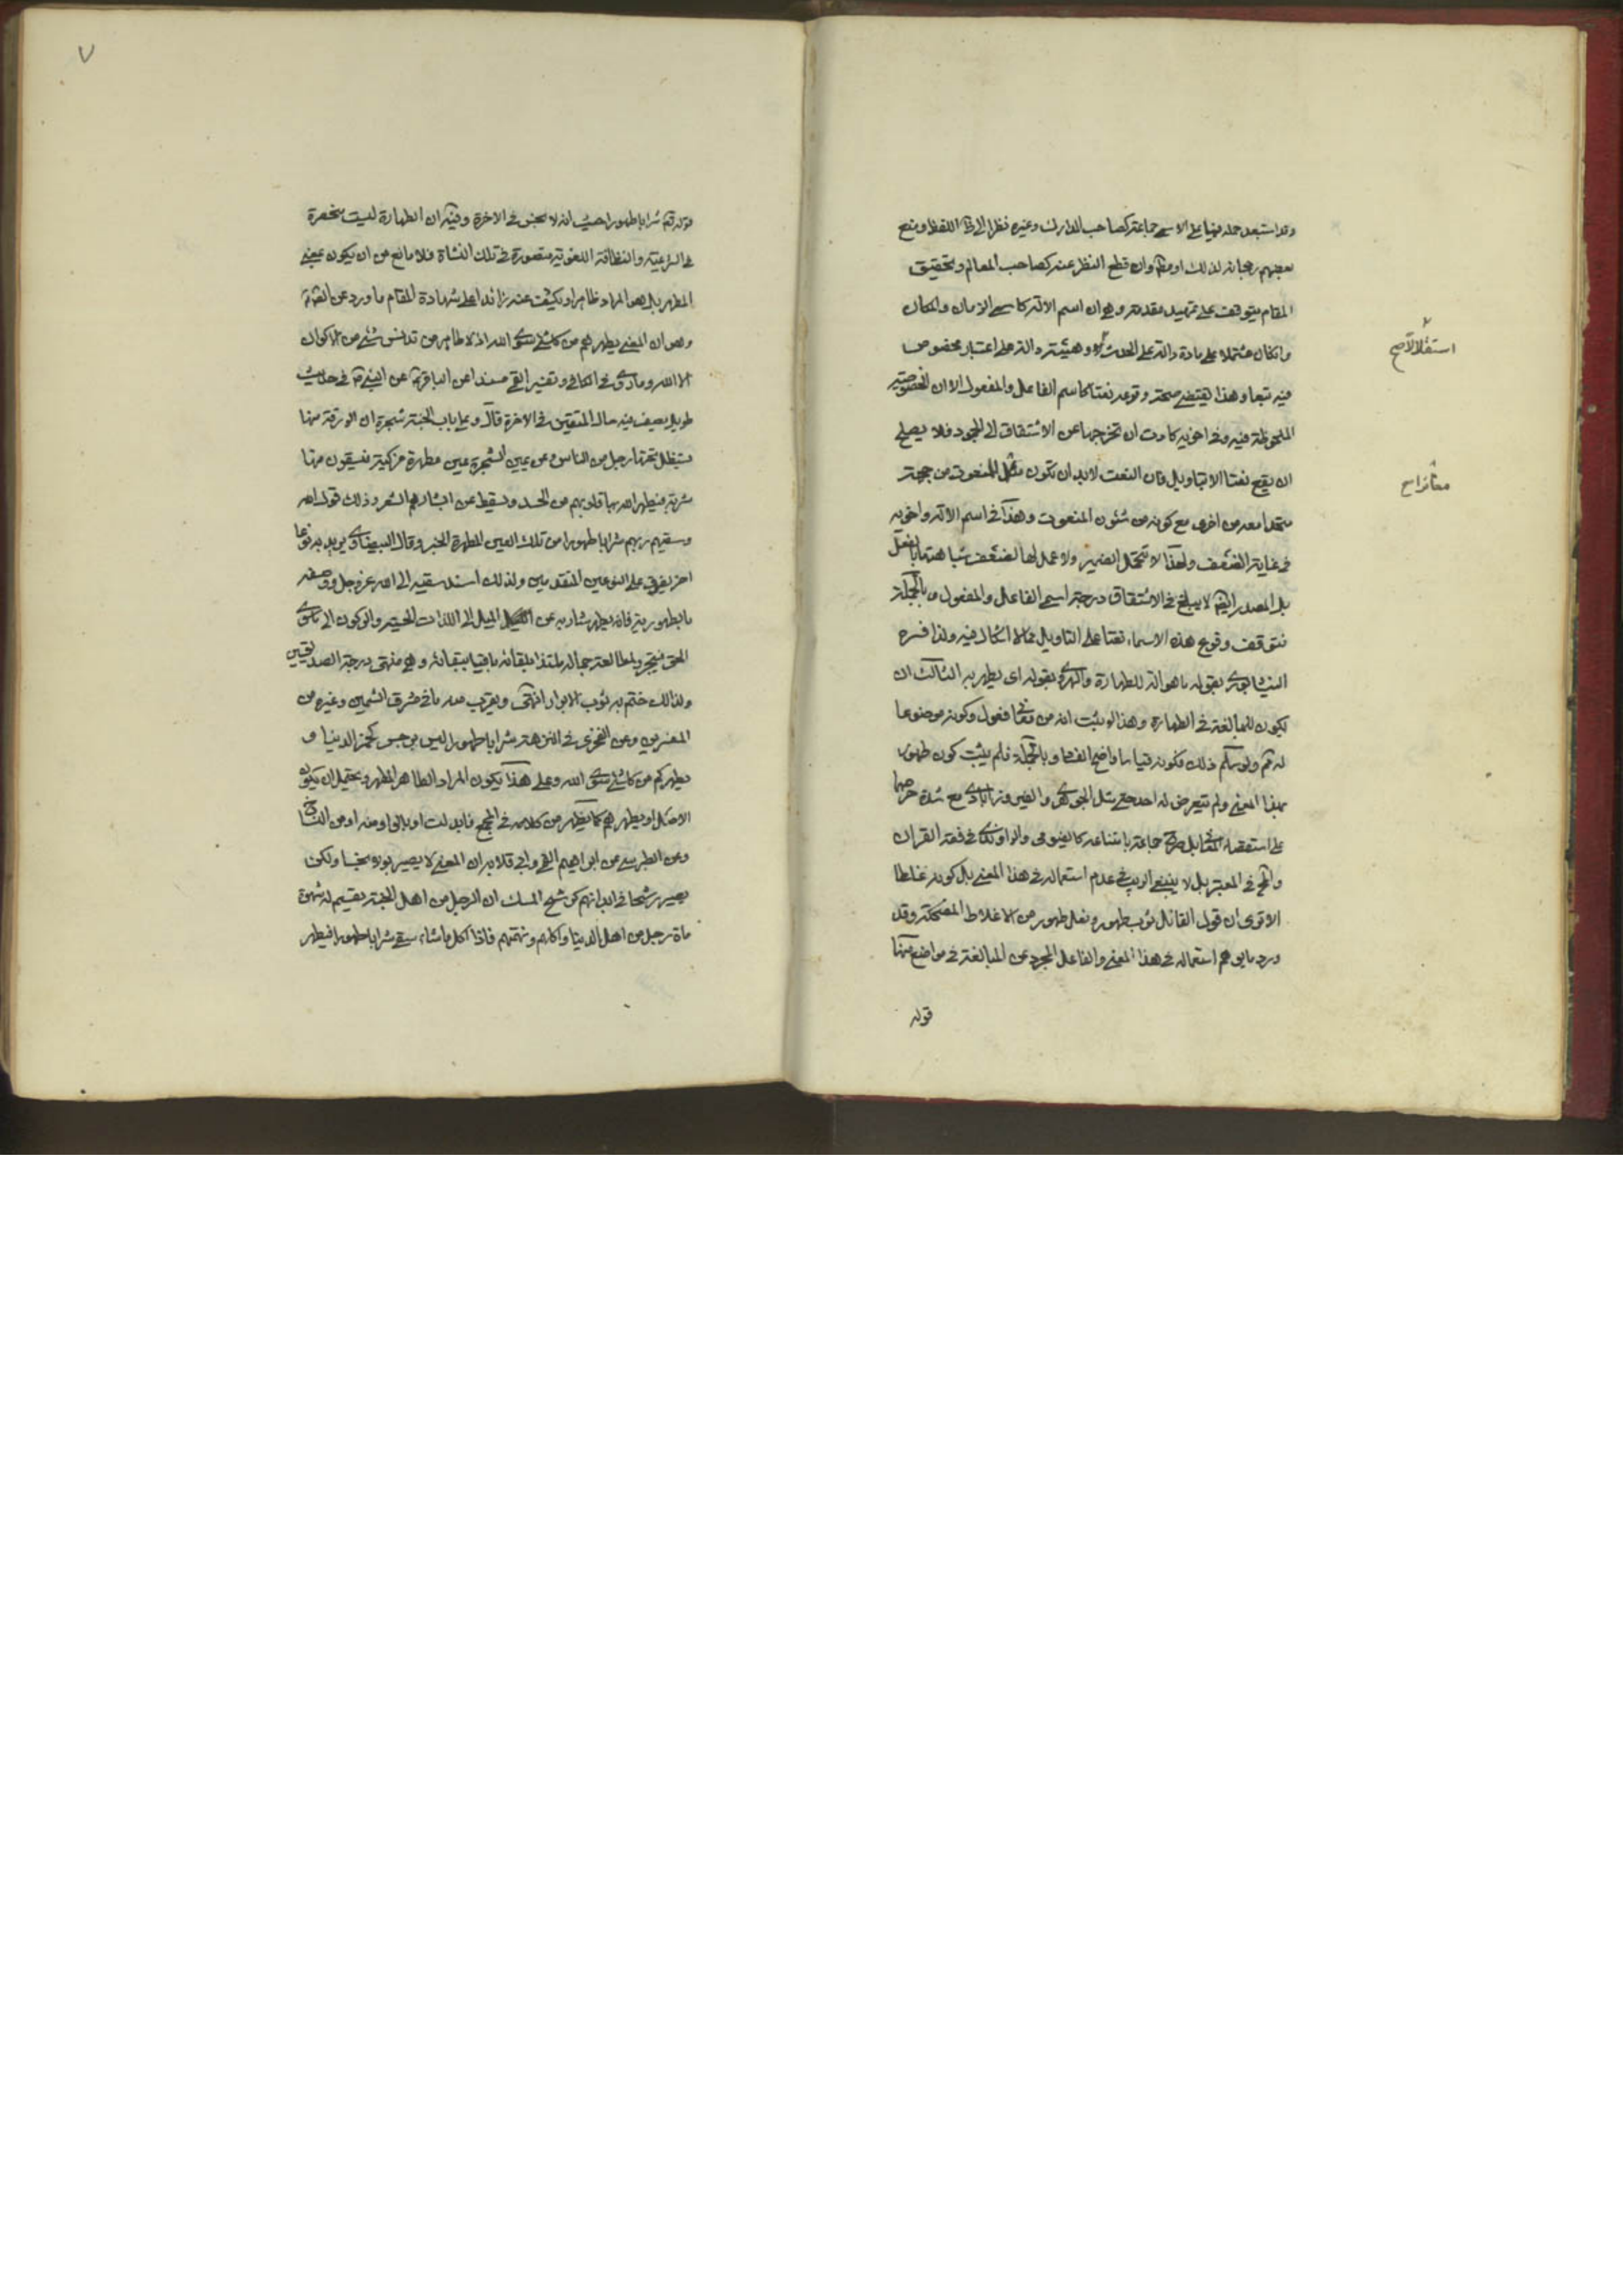 وقد استبعد حمله هنا على الاسم جماعة كصاحب المدارك وغيره نظرا الى ظ اللفظ ومنع
بعضهم رجحانه لذلك او مطلقا وان قطع النظر عنه كصاحب المعالم وتحقيق
المقام يتوقف على تمهيد مقدمة وهي ان اسم الالة كاسمي الزمان والمكان
وان كان مشتملا على مادة دالة على الحدث وهيئة دالة على اعتبار مخصوص
استقلالا صح
فيه تبعا وهذا يقتضي صحة وقوعه نعتا كاسم الفاعل والمفعول الا ان الخصوصية
الملحوظة فيه وفي اخويه كادت ان تخرجها عن الاشتقاق الى الجمود فلا يصلح
ان يقع نعتا الا بتاويل فان النعت لابد ان تكون مع المنعوت من جهة
متحدا معه من اخرى مع كونه من شئون المنعوت وهذا في اسم الالة واخويه
في غاية الضعف ولهذا لا تتحمل الضمير ولا عمل لها لضعف شباهتها بالفعل
بل المصدر ايضا لا يبلغ في الاشتقاق درجة اسمي الفاعل والمفعول وبالجملة
فتوقف وقوع هذه الاسماء نعتا على التاويل مما لا اشكال فيه ولذا فسره
النيشابوري بقوله ما هو الة للطهارة والهروي بقوله اى يطهر به الثالث ان
يكون للمبالغة في الطهارة وهذا لو ثبت انه من معاني فعول وكونه موضوعا
له ثم ولو سلم ذلك فكونه قياسا واضح الفساد وبالجملة فلم يثبت كون طهور
بهذا المعنى ولم يتعرض له احد حتى مثل الجوهرى والفيروزابادى مع شدة حرصهما
على استقصاء المعاني بل صرح جماعة بامتناعه كالفيومى والراوندى في فقه القران
والمحقق في المعتبر بل لا ينبغي الريب في عدم استعماله في هذا المعنى بل كونه غلطا
الا ترى ان قول القائل ثوب طهور ونعل طهور من الاغلاط المضحكة وقد
ورد ما يوهم استعماله في هذا المعنى والفاعل المجرد عن المبالغة في مواضع منها
قوله
٧
قوله تعالى شرابا طهورا حيث انه لا نجس في الاخرة وفيه ان الطهارة ليست منحصرة
في الشرعية والنظافة اللغوية متصورة في تلك النشاة فلا مانع من ان يكون بمعنى
المطهر بل هو المراد ظاهرا ويكشف عنه زائدا على شهادة المقام ما ورد عن الائمة
وهو ان المعنى يطهرهم من كل شئ سوى الله اذ لا طاهر من تدنس بشئ من الاكوان
الا الله وما روى في الكافي وتفسير القمي مسندا عن الباقر عن النبي في حديث
طويل يصف فيه حال المتقين في الاخرة قال وعلى باب الجنة شجرة ان الورقة منها
يستظل تحتها رجل من الناس وعن يمين الشجرة عين مطهرة مزكية فيسقون منها
شربة فيطهر الله بها قلوبهم من الحسد ويسقط عن ابشارهم الشعر وذلك قوله
وسقيهم ربهم شرابا طهورا من تلك العين المطهرة الخبر وقال البيضاوى يريد به نوعا
اخر يفوق على النوعين المتقدمين ولذلك اسند سقيه الى الله عز وجل ووصفه
بالطهورية فانه يطهر شاربه عن الميل الى اللذات الحسية والركون الى ما سوى
الحق فيتجرد لمطالعة جماله ملتذا بلقائه باقيا ببقائه وهي منتهى درجة الصديقين
ولذلك ختم به ثواب الابرار انتهى ويقرب منه ما في مشرق الشمسين وغيره من
المفسرين وعن العزيزى في النزهة شرابا طهورا ليس برجس كخمر الدنيا و
يطهركم من كل شئ سوى الله وعلى هذا يكون المراد الطاهر المطهر ويحتمل ان يكون
وعن الطبرسي عن ابراهيم التيمي وابي قلابة ان المعنى لا يصير بولا نجسا ولكن
يصير رشحا في ابدانهم كرشح المسك ان الرجل من اهل الجنة يقسم له شهوة
مائة رجل من اهل الدنيا واكلهم ونهمتهم فاذا اكل ما شاء سقي شرابا طهورا فيطهر